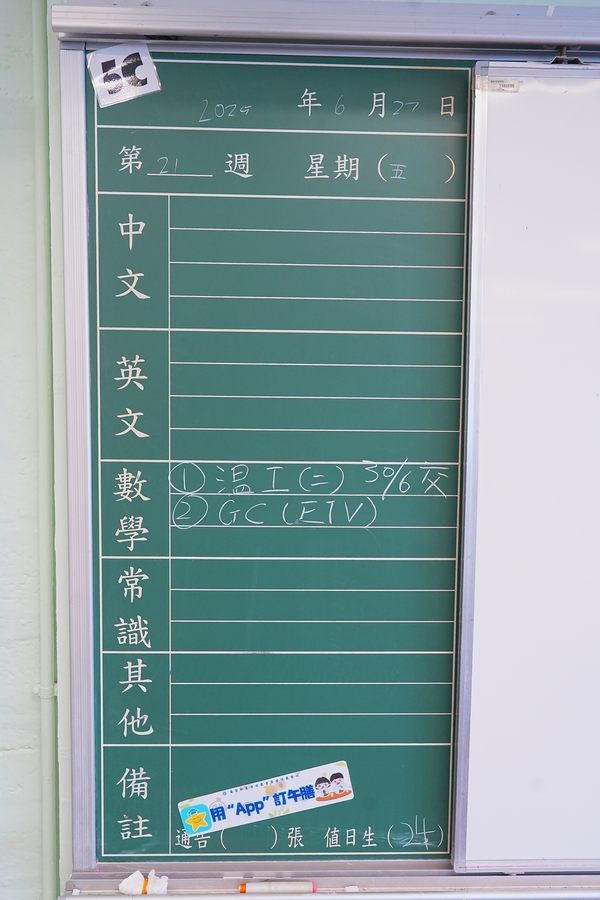 5C
2025 年 6 月 27 日
第 21 週 星期（五）
中文
英文
數學
① 温工(二) 30/6 交
② GC (ETV)
常識
其他
備註
用“App”訂午膳
通告（ ）張 值日生（24）